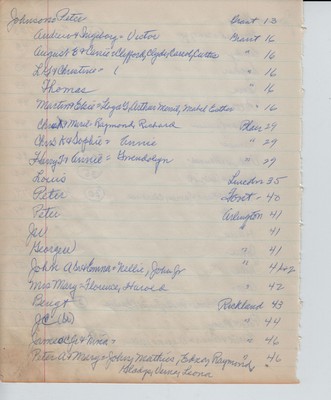 Johnsons Peter Grant 13
Andrew & Ingeborg = Victor Grant 16
August E & Carrie = Clifford, Clyde, Carrol, Curtis " 16
L.G & Christine = ( " 16
Thomas " 16
Martin & Elsie = Loyd G, Arthur Monel, Mabel Esther " 16
& Merl = Raymond, Richard Blair 29
Chris K & Sophie = Annie " 29
Harry T & Annie = Gwendolyn " 29
Louis Lincoln 35
Peter Font - 40
Peter Arlington 41
" 41
George " 41
John A & Emma = Willie, John Jr " 41
Mrs Mary = Florence, Harold " 42
Bengt Rockland 43
" 44
James C & Nina = " 46
Peter A & Mary = John, Mathius, Edna, Raymond, " 46
Gladys, Verna, Leona "